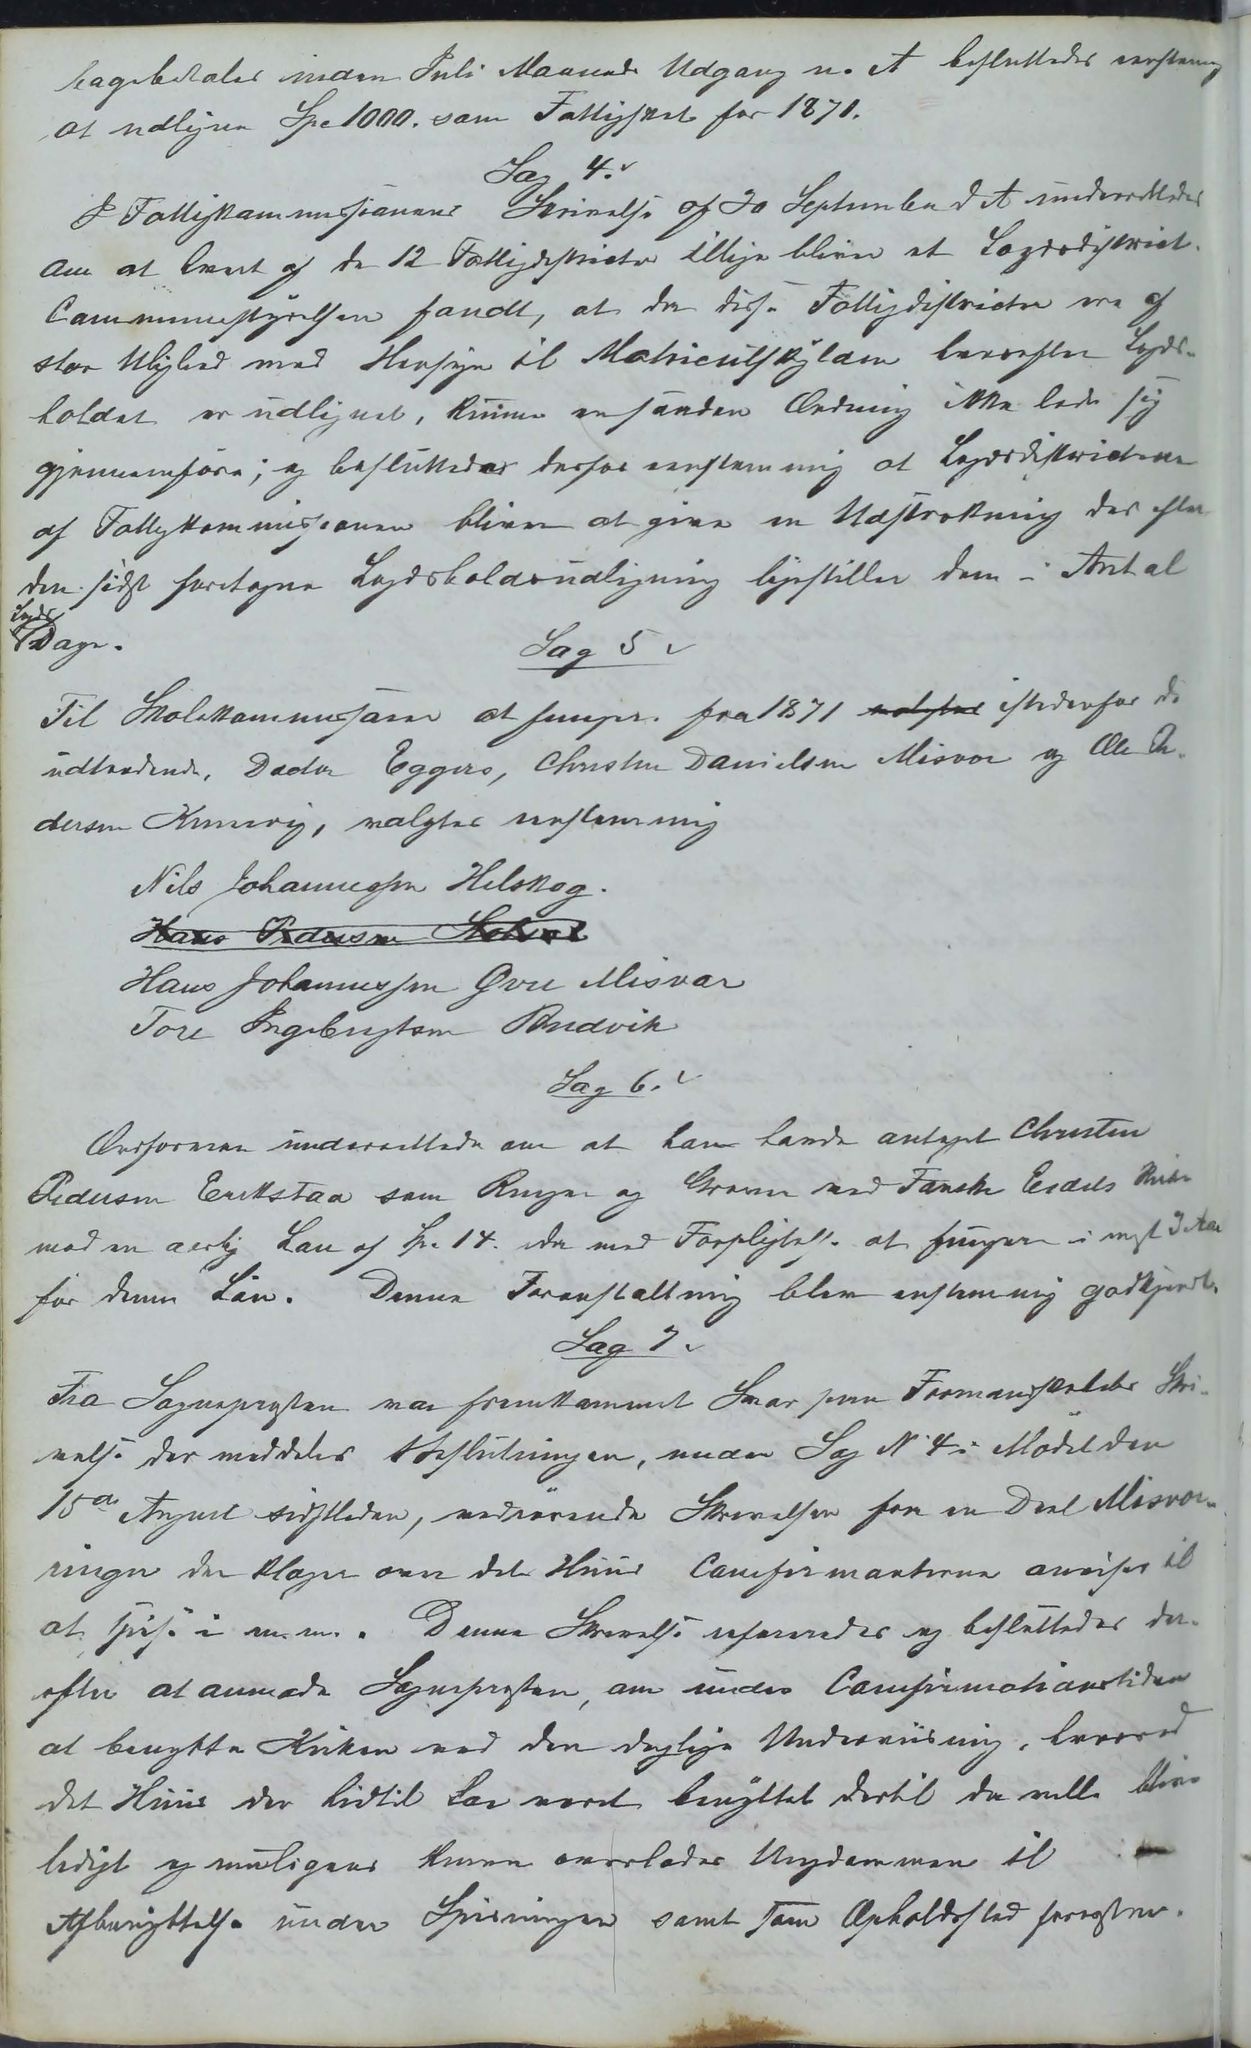 tagebetales inden Juli Maaneds Udgang n. A besluttedes eenstemmig
at udligne Spe 1000. som Fattigskat for 1871.
Sag 4.
I Fattigkommissionens Skrivelse af 30 September d A underrettedes
om at hvert af de 12 Fattigdistricter tillige bliver et Lægdsdistrict.
Communestyrelsen fandt, at da disse Fattigdistricter ere af
stor Ulighed med Hensyn til Matriculskylden hvorefter Lægds-
holdet er udlignet, kunne en saadan Ordning ikke lade sig
gjennemføre; og besluttedes derfor eenstemmig at Lægdsdistricterne
af Fattigkommissionen bliver at give en Udstrækning der efter
den sidst foretagne Lægdsholdsudligning ligestiller dem i Antal
Lægds
Dage.
Sag 5
Til Skolekommissær at fungere fra 1871 valgtes istedenfor de
udtrædende, Doctor Eggers, Christen Danielsen Misvær og Ole Pe-
dersen, valgtes eenstemmig
Nils Johannessen Helskog.
Hans Pedersen
Hans Johannessen Øvre Misvær
Tore Ingebrigtsen Rudvik
Sag 6.
Ordføreren underrettede om at han havde antaget Christen
Pedersen Erikstad som Ringer og Graver ved Fauske Eides Kirke
mod en aarlig Løn af Sp. 14. med Forpligtelse at fungere i 3 Aar
for denne Løn. Denne Foranstaltning blev eenstemmig godkjendt.
Sag 7
Fra Sognepresten var fremkommet Svar paa Formandskabets Skri-
velse der meddeles Beslutningen, under Sag No 4 i Mødet den
15de August sidstleden, vedrørende Skrivelsen fra en Deel Misvær-
inger der klager over det Huus Confirmanterne anvises til
at spise i m.m. Denne Skrivelse refereredes og besluttedes der-
efter at anmode Sognepresten, om under Confirmationstiden
at benytte Kirken ved den daglige Underviisning, hvorved
det Huus der hidtil har været benyttet dertil da ville blive
ledigt og muligens kunne overlades Ungdommen til
Afbenyttelse under Spisningen samt som Opholdssted forresten.